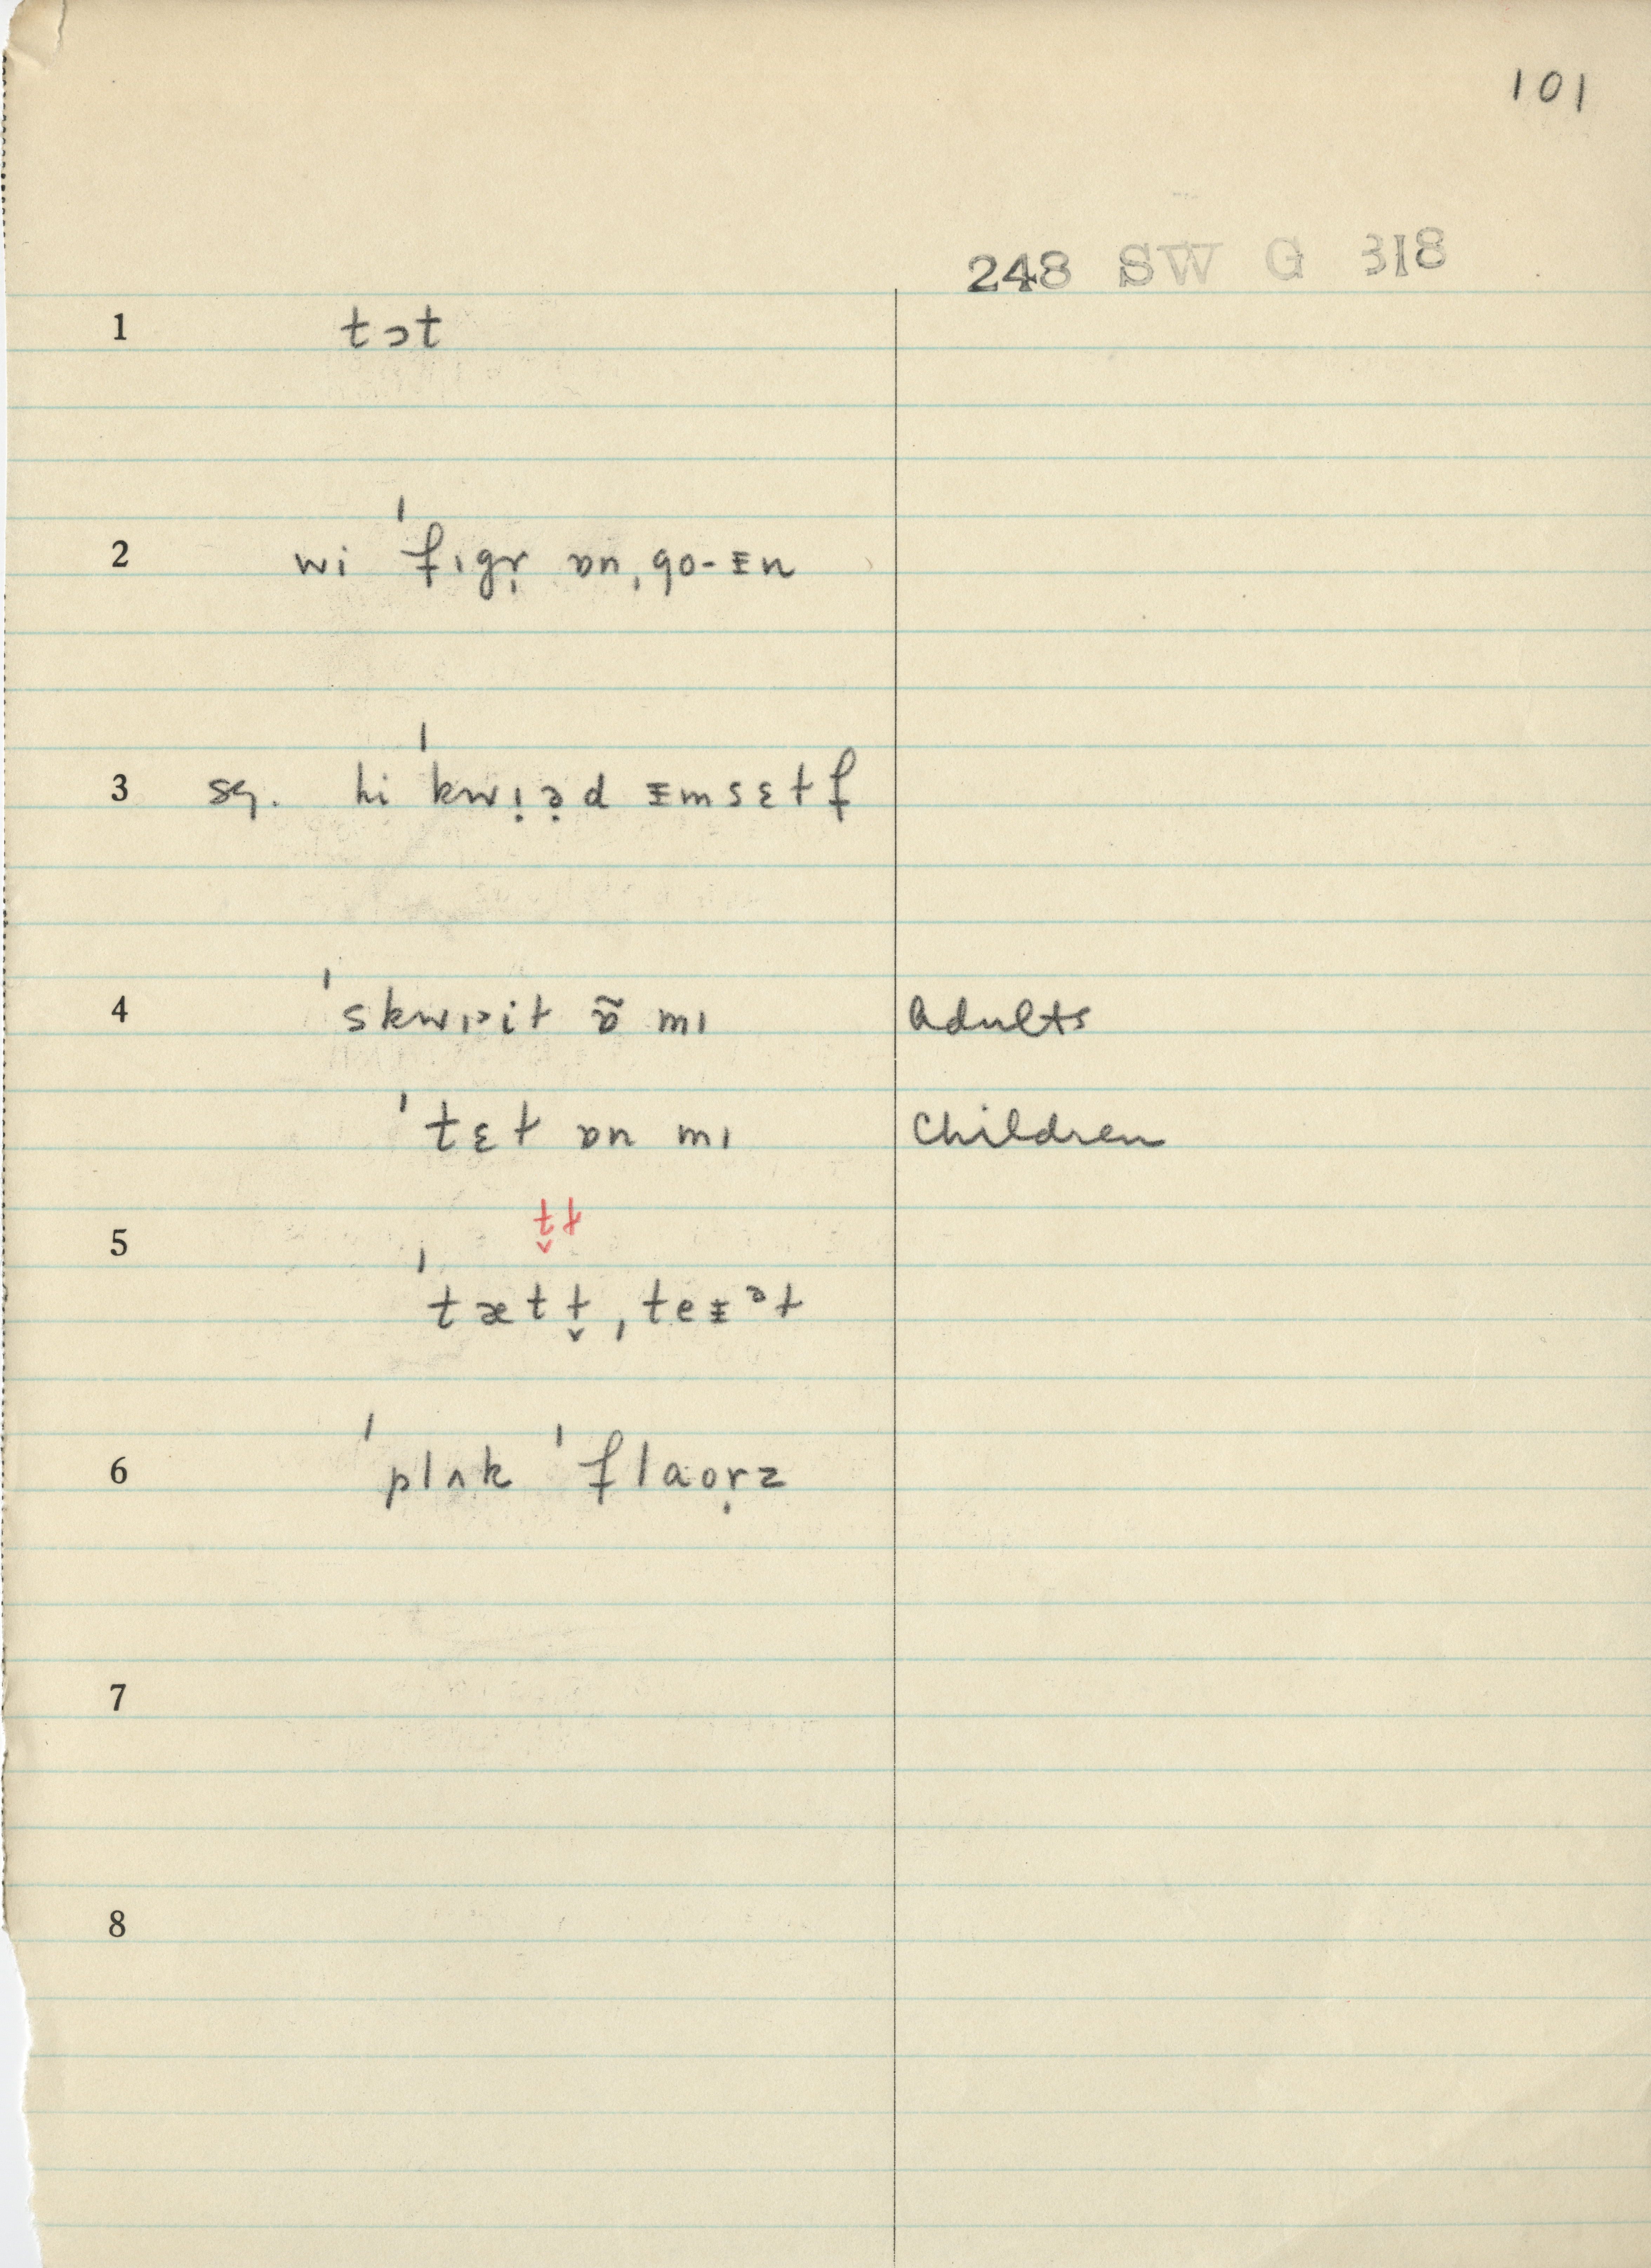 101
248 SW G 318
1 tɔt
2 wi ˈfɪgr̩ ɒn ˌgo-ᵻn
3 sq. hi ˈkwɪ̣ə̣d ᵻmsɛɫf
4 ˈskwɪɔiɫ ɒ̃ mɪ adults
ˈtɛɫ ɒn mɪ children
t̬ɫ
5 ˈtætɫ̬ ˌteᵻᵊɫ
6 ˈplʌk ˈflaʊr̩z
7
8